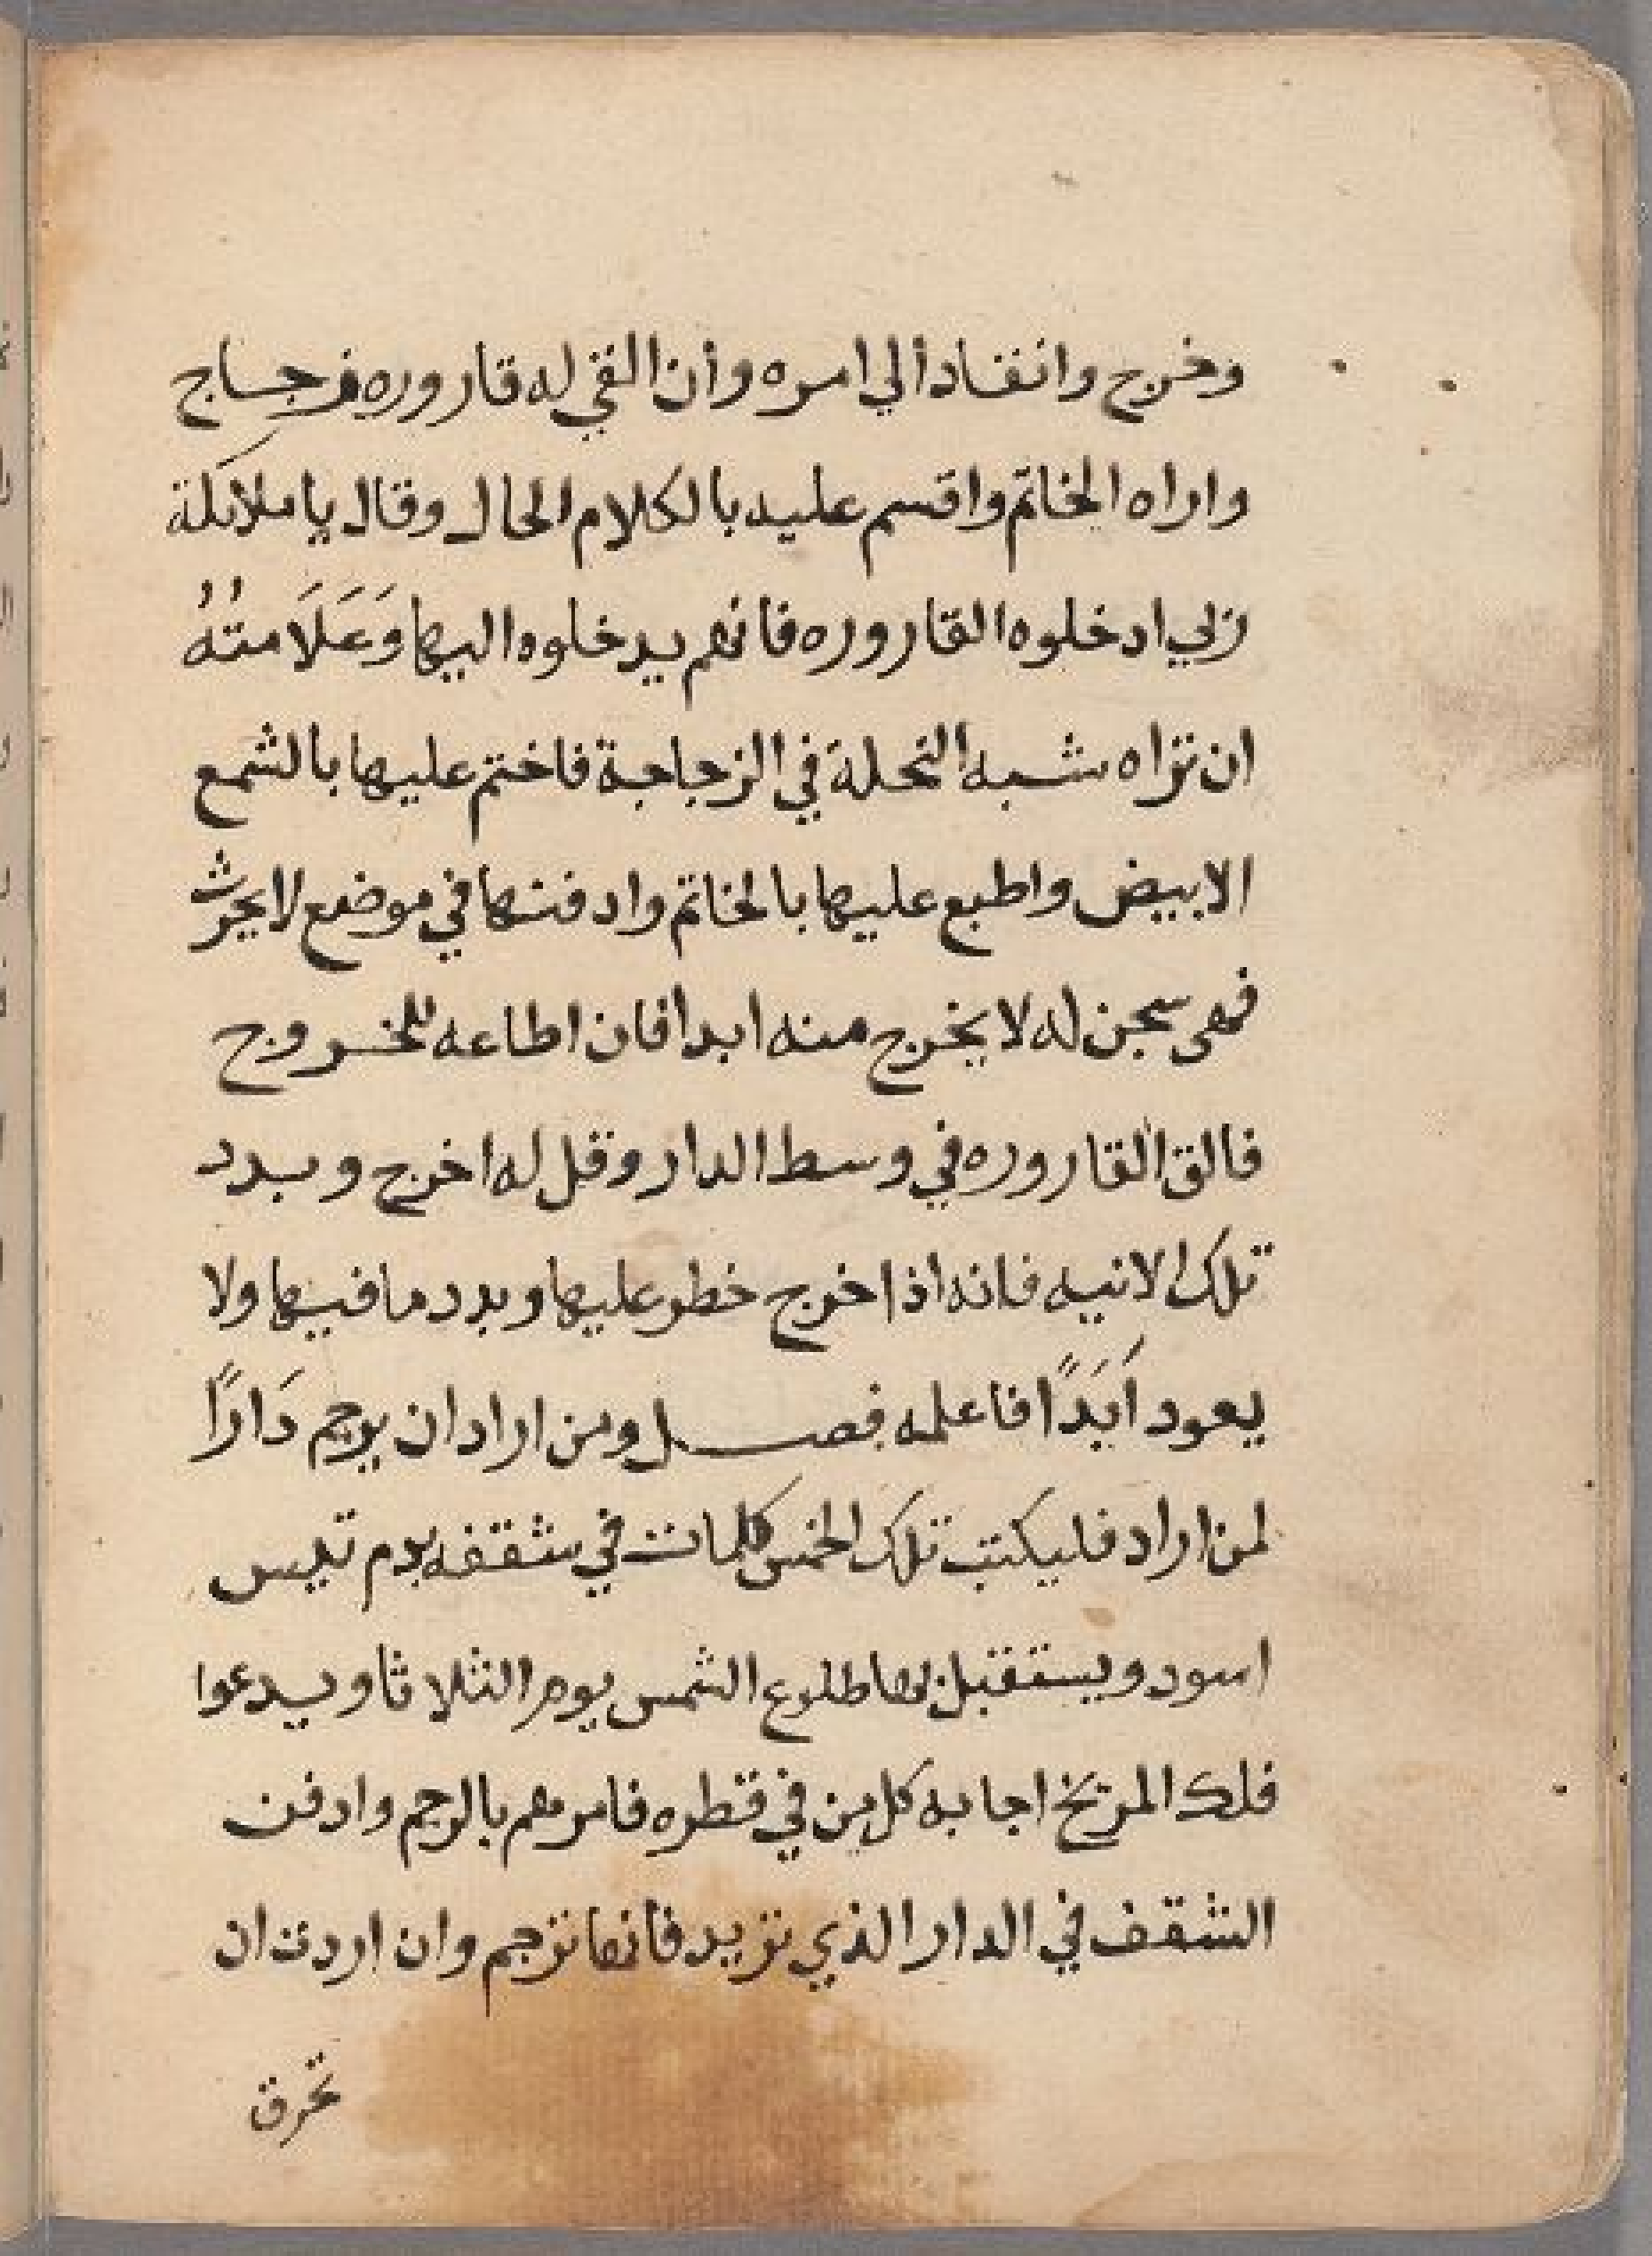 وخرج وانقاد ألي امره وأن القي له قاروره زجاج
واراه الخاتم واقسم عليه بالكلام الحال وقال يا ملائكة
ربي ادخلوه القاروره فانهم يدخلوه اليها وَعَلَامتهُ
ان تراه شبه النحلة في الزجاجة فاختم عليها بالشمع
الابيض واطبع عليها بالخاتم وادفنها في موضع لا يحرث
فهى سجن له لا يخرج منه ابدا فان اطاعه للخروج
فالق القاروره في وسط الدار وقل له اخرج وبدد
تلك الانيه فانه اذا خرج خطر عليها وبدد ما فيها ولا
يعود اَبَداً فاعلمه فصل ومن اراد ان يرجم دَاراً
لمن اراد فليكتب تلك الخمس كلمات في شقفه بدم تيس
اسود ويستقبل بها طلوع الشمس يوم الثلاثا ويدعوا
فلك المريخ اجابه كل من في قطره فامرهم بالرجم وادفن
الشقف في الدار الذي تريد فانها ترجم وان اردت ان
تحرق